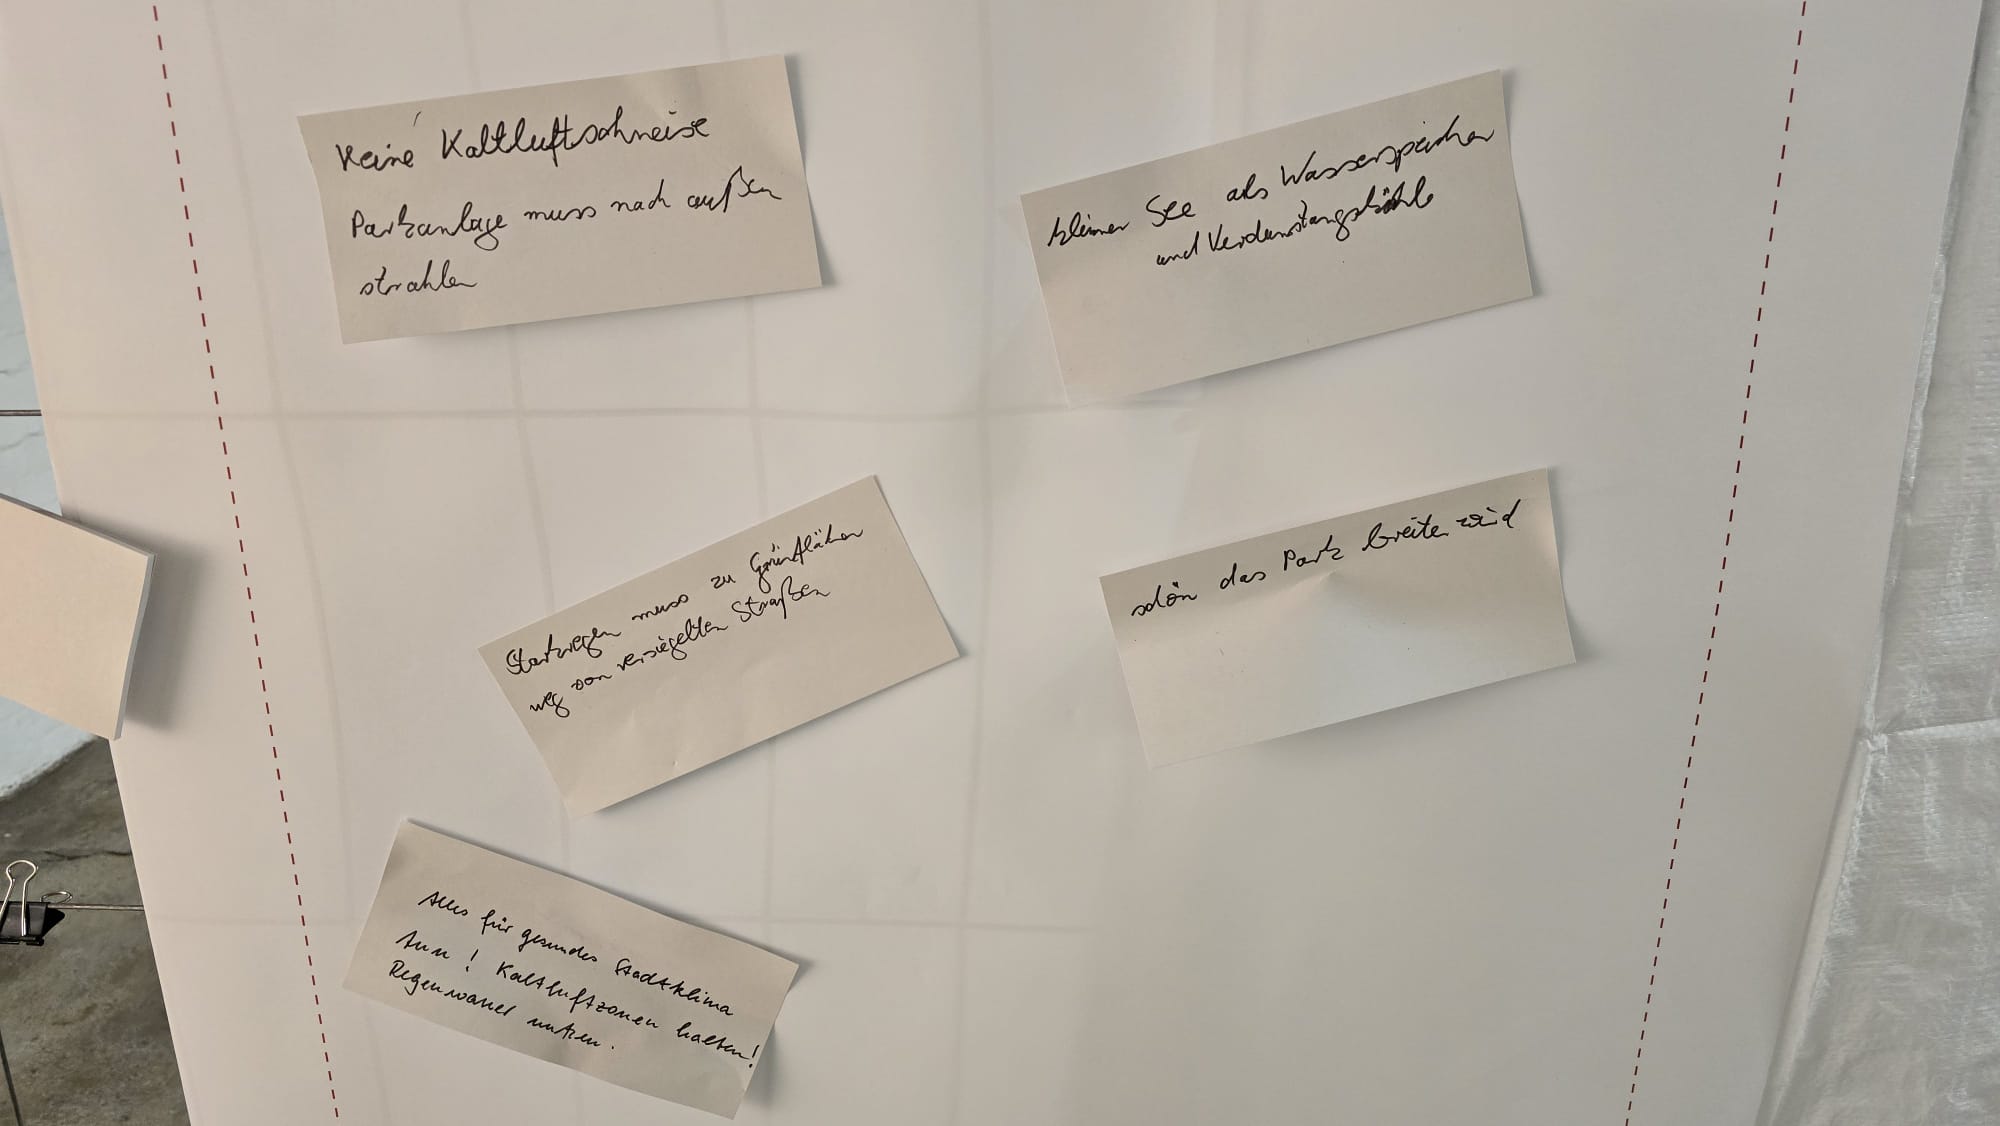 Keine Kaltluftschneise
Parkanlage muss nach außen
strahlen
kleiner See als Wasserspeicher
und Verdunstungskühle
Starkregen muss zu Grünflächen
weg von versiegelten Straßen
schön das Park breiter wird
Alles für gesundes Stadtklima
tun! Kaltluftzonen halten!
Regenwasser nutzen.